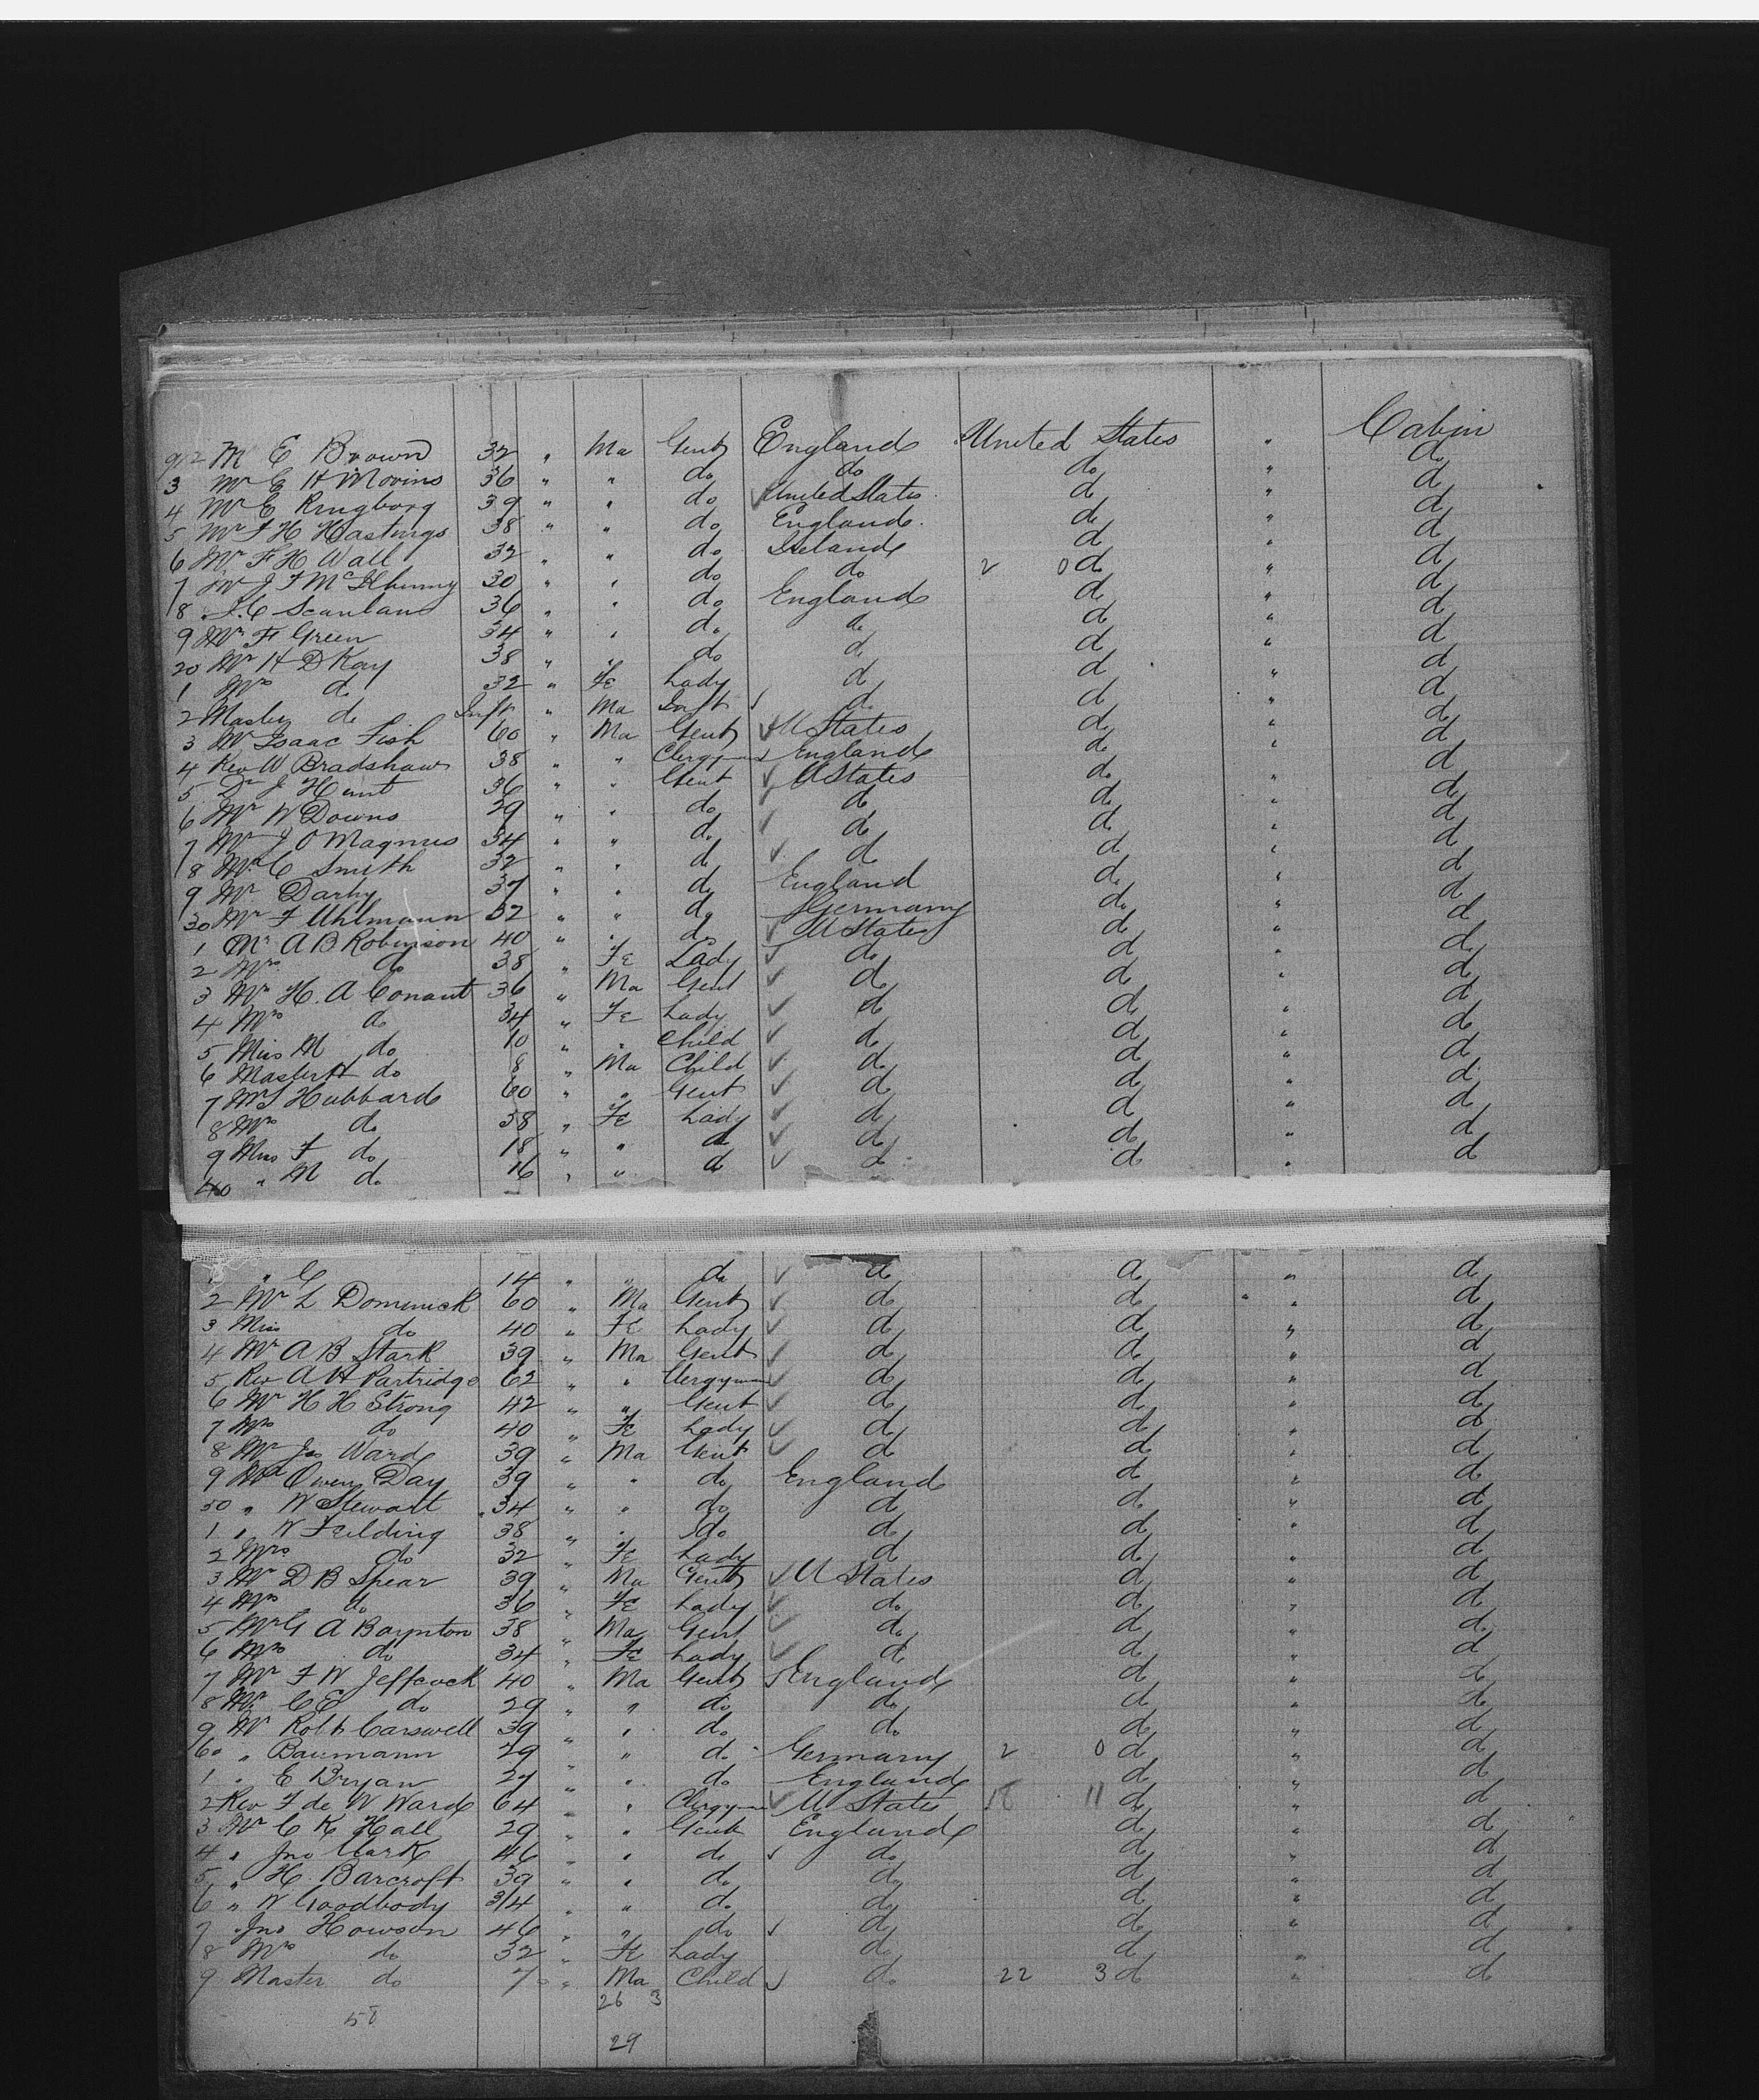 912 M E Brown 32 " Ma Gent England United States " Cabin
3 Mr E H Movins 36 " " do do do " do
4 Mr E Ringborg 39 " " do United States do " do
5 Mr F H Hastings 38 " " do England do " do
6 Mr F H Wall 32 " " do Ireland do " do
7 Mr J F 30 " " do do 2 0 do " do
8 J. C Scanlan 36 " " do England do " do
9 Mr F Green 34 " " do do do " do
20 Mr H D Kay 38 " " do do do " do
1 Mrs do 32 " Fe Lady do do " do
2 Master do Inft " Ma Inft do do " do
3 Mr Isaac Fish 60 " Ma Gent U States do " do
4 Rev W Bradshaw 38 " " Clergyman England do " do
5 Dr J Hunt 36 " " Gent U States do " do
6 Mr W Downs 29 " " do do do " do
7 Mr J O Magnus 34 " " do do do " do
8 Mr C Smith 32 " " do do do " do
9 Mr Darby 37 " " do England do " do
30 Mr F Uhlmann 32 " " do Germany do " do
1 Mr A B Robinson 40 " " do U States do " do
2 Mrs do 38 " Fe Lady do do " do
3 Mr H. A Conant 36 " Ma Gent do do " do
4 Mrs do 34 " Fe Lady do do " do
5 Miss M do 10 " " Child do do " do
6 Master H do 8 " Ma Child do do " do
7 Mr Hubbard 60 " " Gent do do " do
8 Mrs do 58 " Fe Lady do do " do
9 Miss F do 18 " " do do do " do
40 " M do 16 " " do do do " do
1 " G 14 " " do do do " do
2 Mr L Dominick 60 " Ma Gent do do " do
3 Miss do 40 " Fe Lady do do " do
4 Mr A B Stark 39 " Ma Gent do do " do
5 Rev A H Partridge 62 " " Clergyman do do " do
6 Mr H H Strong 42 " " Gent do do " do
7 Mrs do 40 " Fe Lady do do " do
8 Mr Jas Ward 39 " Ma Gent do do " do
9 Mr Owen Day 39 " " do England do " do
50 " W Stewart 34 " " do do do " do
1 " W Feilding 38 " " do do do " do
2 Mrs do 32 " Fe Lady do do " do
3 Mr D B Spear 39 " Ma Gent U States do " do
4 Mrs do 36 " Fe Lady do do " do
5 Mr G A Boynton 38 " Ma Gent do do " do
6 Mrs do 34 " Fe Lady do do " do
7 Mr F W Jeffcock 40 " Ma Gent England do " do
8 Mr C E do 29 " " do do do " do
9 Mr Robt Carswell 39 " " do do do " do
60 " Baumann 29 " " do Germany 2 0 do " do
1 " E Bryan 27 " " do England do " do
2 Rev F de W Ward 64 " " Clergyman U States 18 11 do " do
3 Mr C K Hall 29 " " Gent England do " do
4 " Jno Clark 46 " " do do do " do
5 " H. Barcroft 39 " " do do do " do
6 " W Goodbody 34 " " do do do " do
7 " Jno Howson 46 " " do do do " do
8 Mrs do 32 " Fe Lady do do " do
9 Master do 7 " Ma Child do 22 3 do " do
26 3
58
29